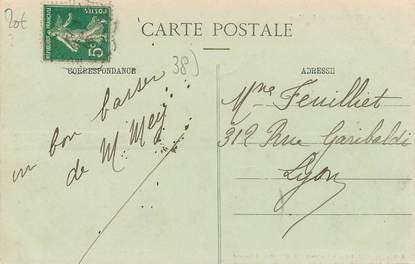 CARTE POSTALE
CORRESPONDANCE
ADRESSE
POSTES
REPUBLIQUE FRANÇAISE
5c
38)
un bon baiser
de M Mey
Mme Feuilliet
312 Rue Garibaldi
Lyon